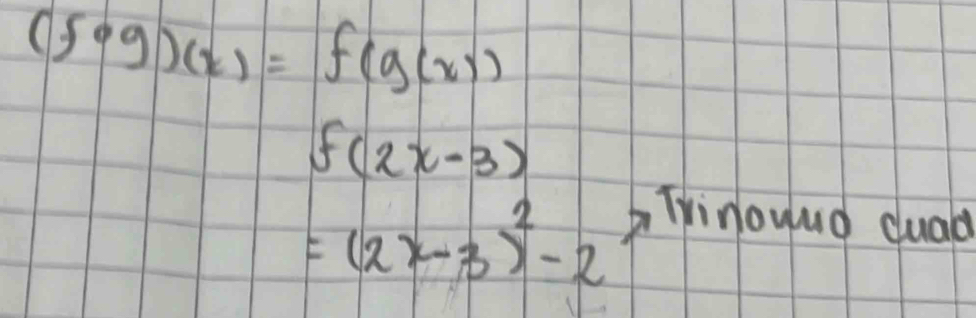 (f∘g)(x) = f(g(x))
f(2x-3)
= (2x-3)² - 2 → Trinomio cuad